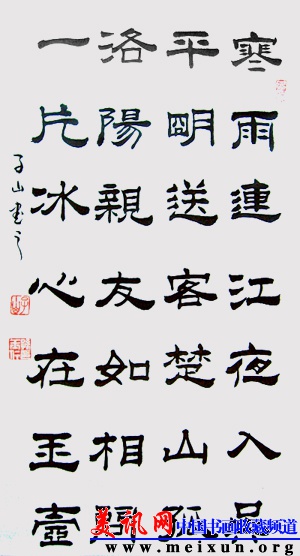 寒雨連江夜入吳
平明送客楚山孤
洛陽親友如相問
一片冰心在玉壺
子山書之
美讯网
中国书画收藏频道
www.meixun.org